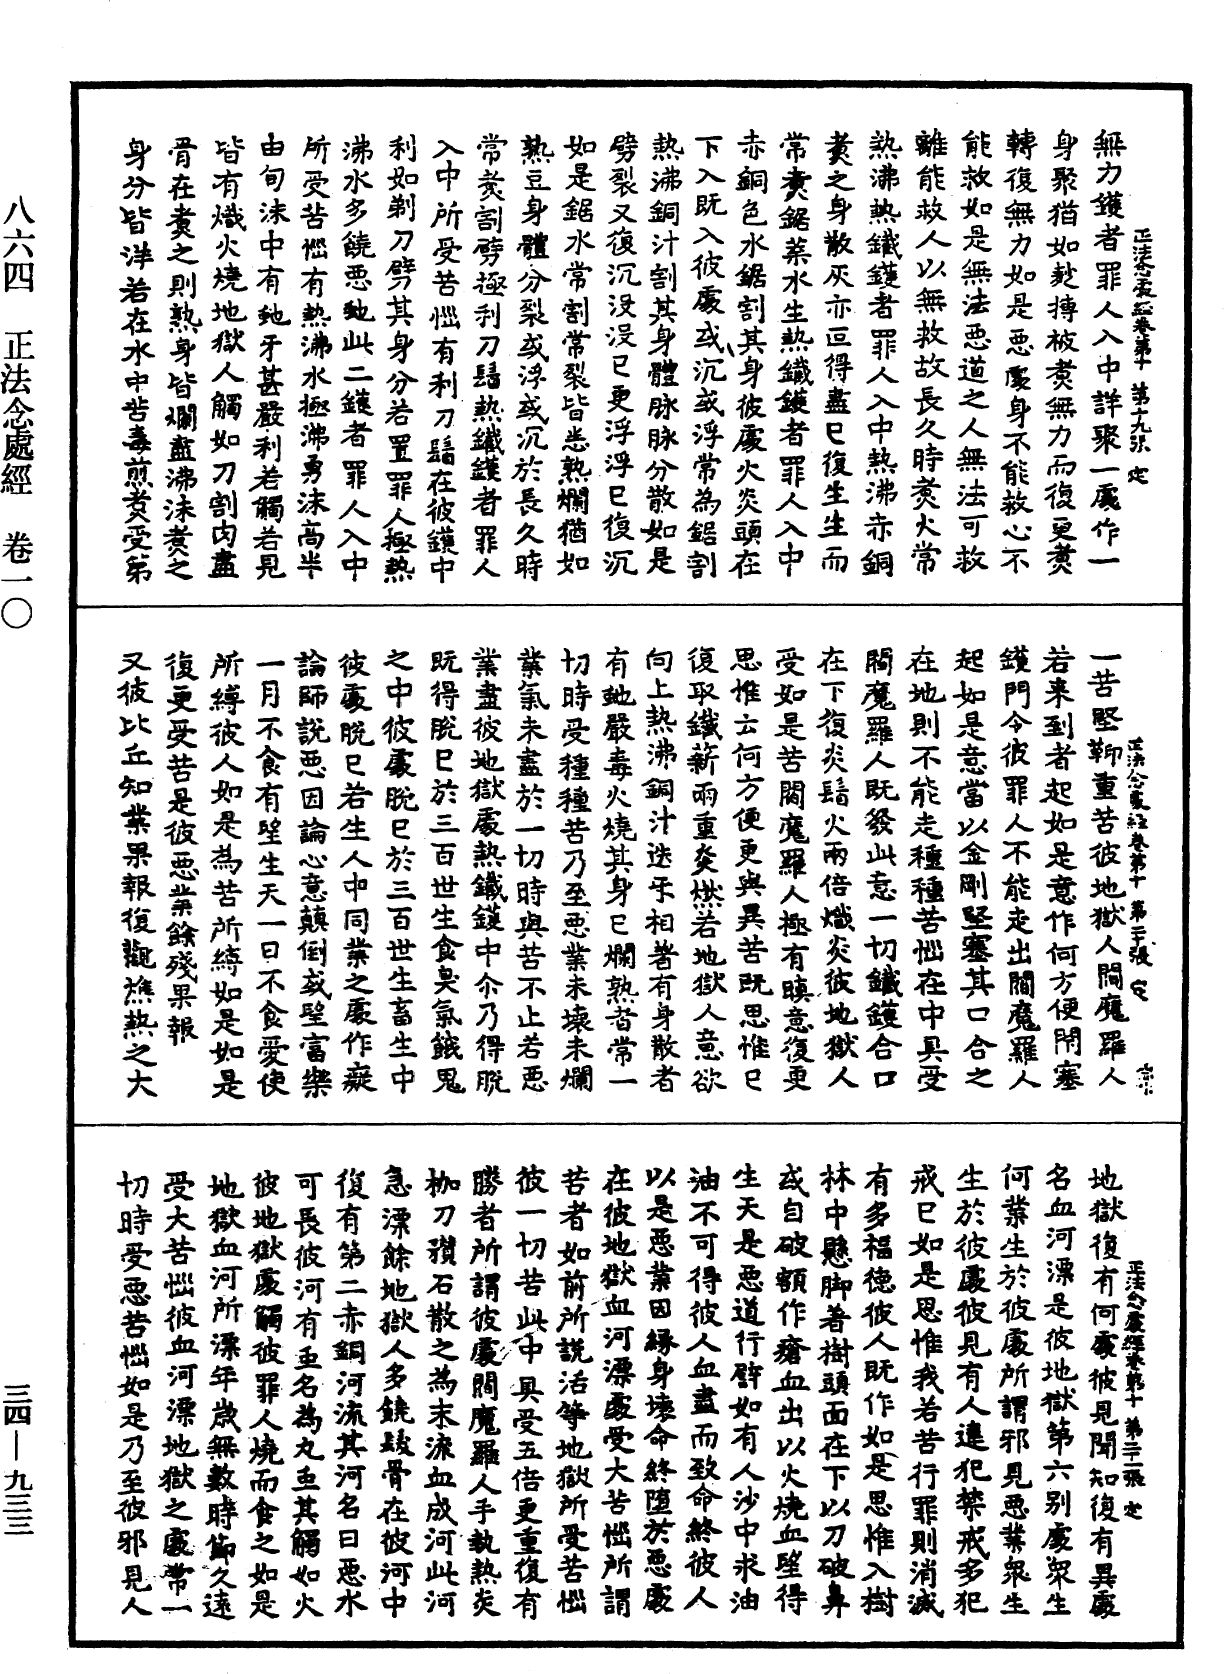 八六四　正法念處經　卷一〇
三四—九三三
正法念處經卷第十　第十九張　定
無力鑊者罪人入中詳聚一處作一
身聚猶如麨摶被煑無力而復更煑
轉復無力如是惡處身不能救心不
能救如是無法惡道之人無法可救
離能救人以無救故長久時煑火常
熱沸熱鐵鑊者罪人入中熱沸赤銅
煑之身散灰亦叵得盡已復生生而
常煑鋸葉水生熱鐵鑊者罪人入中
赤銅色水鋸割其身彼處火炎頭在
下入既入彼處或沉或浮常為鋸割
熱沸銅汁割其身體脉脉分散如是
劈裂又復沉沒沒已更浮浮已復沉
如是鋸水常割常裂皆悉熟爛猶如
熟豆身體分裂或浮或沉於長久時
常煑割劈極利刀鬘熱鐵鑊者罪人
入中所受苦惱有利刀鬘在彼鑊中
利如剃刀劈其身分若置罪人極熱
沸水多饒惡虵此二鑊者罪人入中
所受苦惱有熱沸水極沸勇沫高半
由旬沫中有虵牙甚嚴利若觸若見
皆有熾火燒地獄人觸如刀割肉盡
骨在煑之則熟身皆爛盡沸沫煑之
身分皆洋若在水中苦毒煎煑受第
正法念處經卷第十　第二十張　定
一苦堅鞕重苦彼地獄人閻魔羅人
若来到者起如是意作何方便閉塞
鑊門令彼罪人不能走出閻魔羅人
起如是意當以金剛堅塞其口合之
在地則不能走種種苦惱在中具受
閻魔羅人既發此意一切鐵鑊合口
在下復炎鬘火兩倍熾炎彼地獄人
受如是苦閻魔羅人極有瞋意復更
思惟云何方便更與異苦既思惟已
復取鐵薪兩重炎燃若地獄人意欲
向上熱沸銅汁迭互相著有身散者
有虵嚴毒火燒其身已爛熟者常一
切時受種種苦乃至惡業未壞未爛
業氣未盡於一切時與苦不止若惡
業盡彼地獄處熱鐵鑊中尒乃得脫
既得脫已於三百世生食臭氣餓鬼
之中彼處脫已於三百世生畜生中
彼處脫已若生人中同業之處作癡
論師說惡因論心意顛倒或望富樂
一月不食有望生天一日不食愛使
所縛彼人如是為苦所縛如是如是
復更受苦是彼惡業餘殘果報
又彼比丘知業果報復觀燋熱之大
正法念處經卷第十　第二十一張　定
地獄復有何處彼見聞知復有異處
名血河漂是彼地獄第六别處衆生
何業生於彼處所謂邪見惡業衆生
生於彼處彼見有人違犯禁戒多犯
戒已如是思惟我若苦行罪則消滅
有多福德彼人既作如是思惟入樹
林中懸脚著樹頭面在下以刀破鼻
或自破額作瘡血出以火燒血望得
生天是惡道行譬如有人沙中求油
油不可得彼人血盡而致命終彼人
以是惡業因緣身壞命終墮於惡處
在彼地獄血河漂處受大苦惱所謂
苦者如前所說活等地獄所受苦惱
彼一切苦此中具受五倍更重復有
勝者所謂彼處閻魔羅人手執熱炎
枷刀礸石散之為末流血成河此河
急漂餘地獄人多饒髮骨在彼河中
復有第二赤銅河流其河名曰惡水
可長彼河有䖝名為丸䖝其觸如火
彼地獄處觸彼罪人燒而食之如是
地獄血河所漂年歲無數時節久遠
受大苦惱彼血河漂地獄之處常一
切時受惡苦惱如是乃至彼邪見人